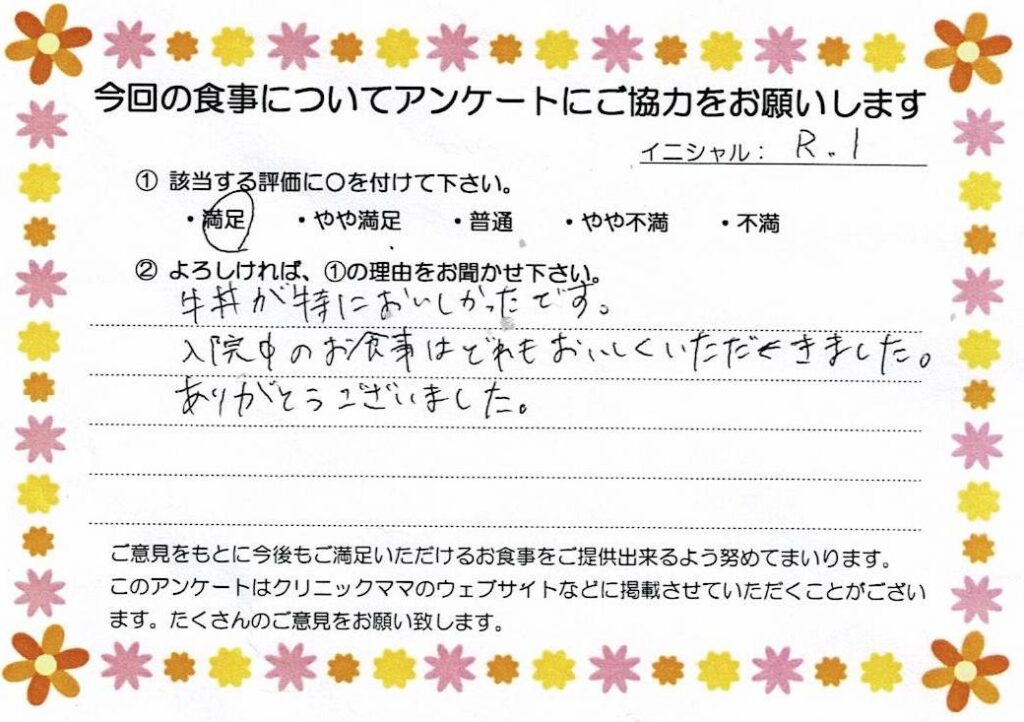 今回の食事についてアンケートにご協力をお願いします
イニシャル： R.I
① 該当する評価に〇を付けて下さい。
・満足 ・やや満足 ・普通 ・やや不満 ・不満
② よろしければ、①の理由をお聞かせ下さい。
牛丼が特においしかったです。
入院中のお食事はどれもおいしくいただきました。
ありがとうございました。
ご意見をもとに今後もご満足いただけるお食事をご提供出来るよう努めてまいります。
このアンケートはクリニックママのウェブサイトなどに掲載させていただくことがござい
ます。たくさんのご意見をお願い致します。